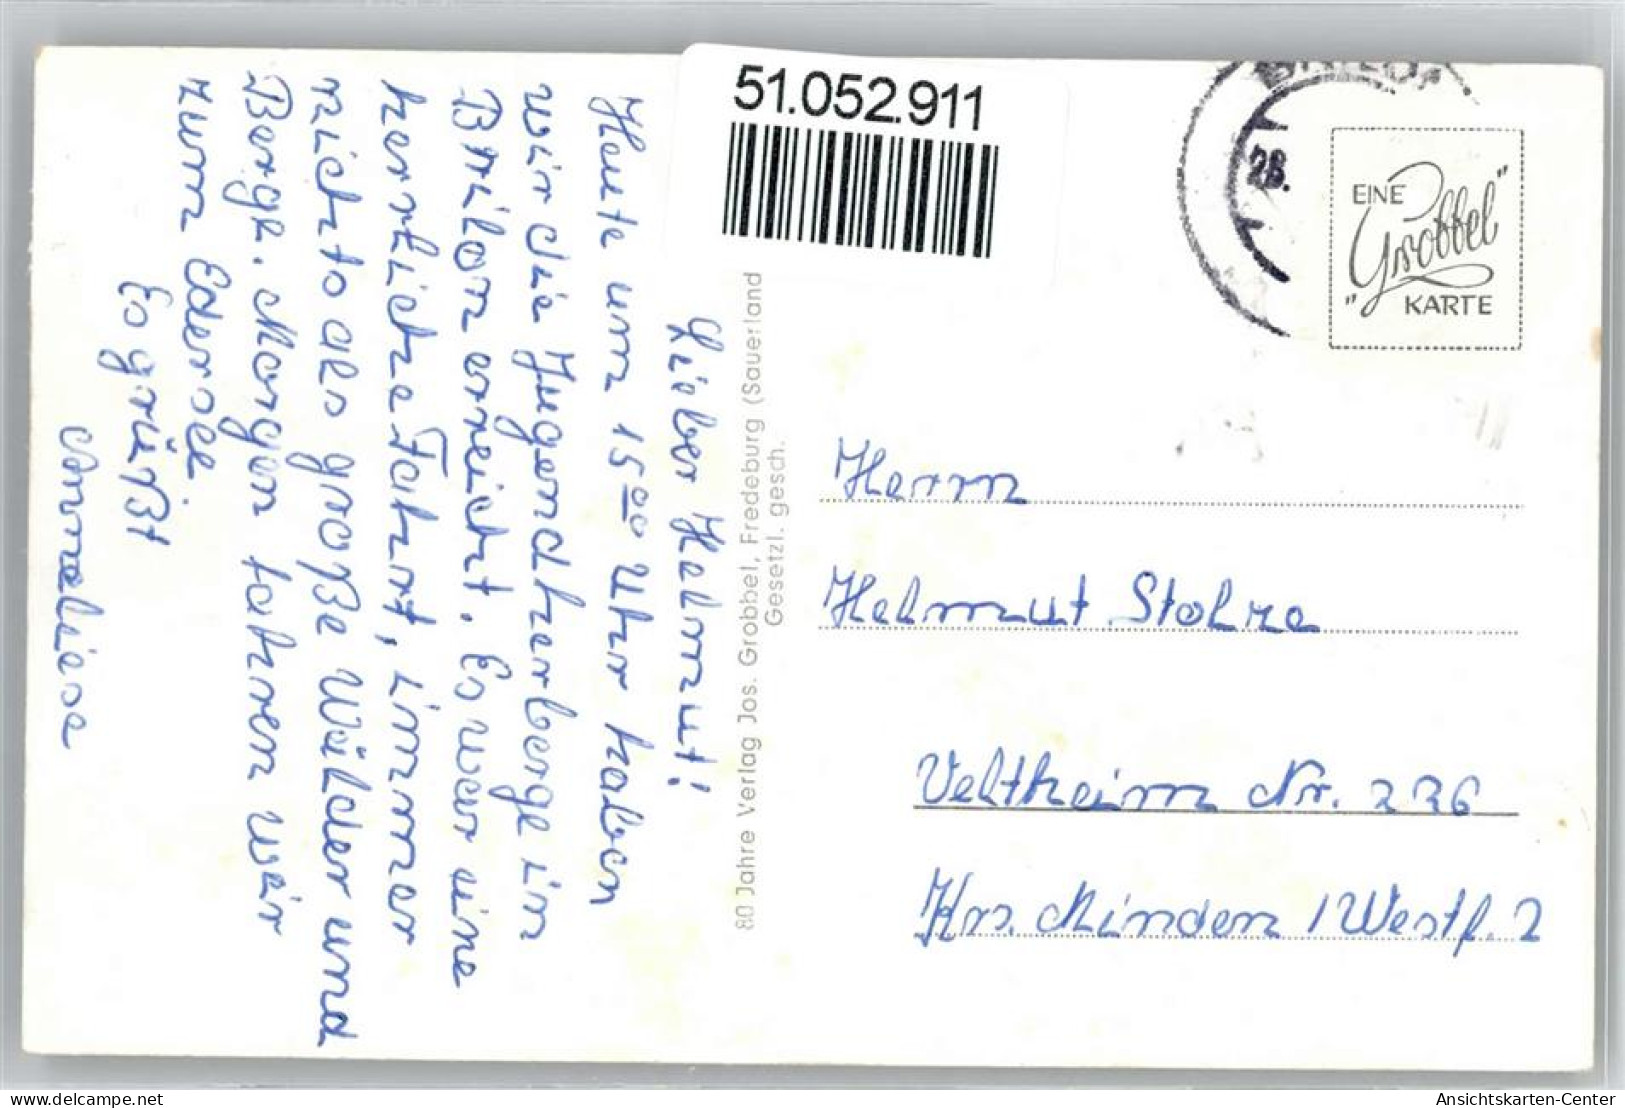 51.052.911
28.
EINE
"Grobbel"
KARTE
Lieber Helmut!
Heute um 15.00 Uhr haben
wir die Jugendherberge in
Brilon erreicht. Es war eine
herrliche Fahrt, immer
nichts als große Wälder und
Berge. Morgen fahren wir
zum Edersee
Es grüßt
Anneliese
80 Jahre Verlag Jos. Grobbel, Fredeburg (Sauerland
Gesetzl. gesch.
Herrn
Helmut Stolze
Veltheim Nr. 226
Krs. Minden / Westf. 2
delcampe.net
Ansichtskarten-Center